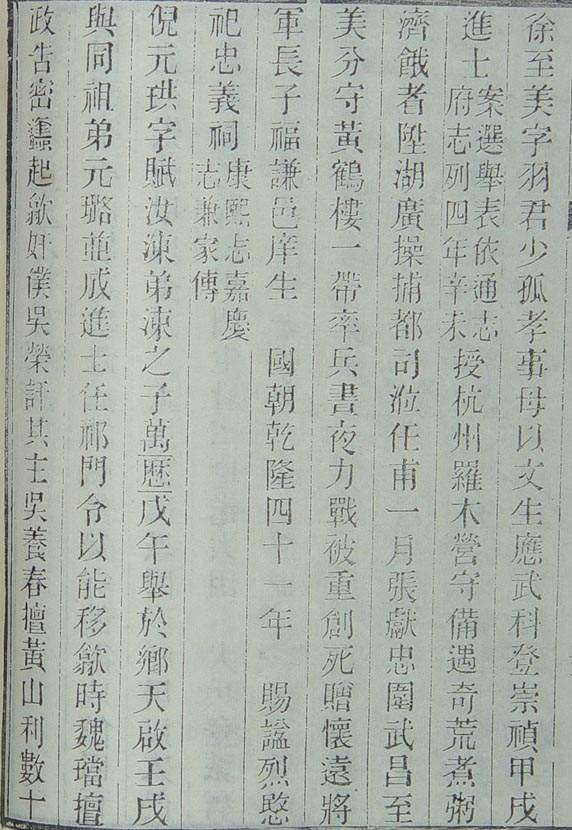 徐至美字羽君少孤孝事母以文生應武科登崇禎甲戌
進士案選舉表依通志府志列四年辛未授杭州羅木營守備遇奇荒煮粥
濟餓者陞湖廣操捕都司涖任甫一月張獻忠圍武昌至
美分守黃鶴樓一帶率兵晝夜力戰被重創死贈懷遠將
軍長子福謙邑庠生 國朝乾隆四十一年 賜謚烈愍
祀忠義祠康熙志嘉慶志兼家傳
倪元珙字賦汝涷弟涷之子萬曆戊午舉於鄉天啟壬戌
與同祖弟元璐並成進士任祁門令以能移歙時魏璫擅
政告密蠭起歙奸僕吳榮訐其主吳養春擅黃山利數十